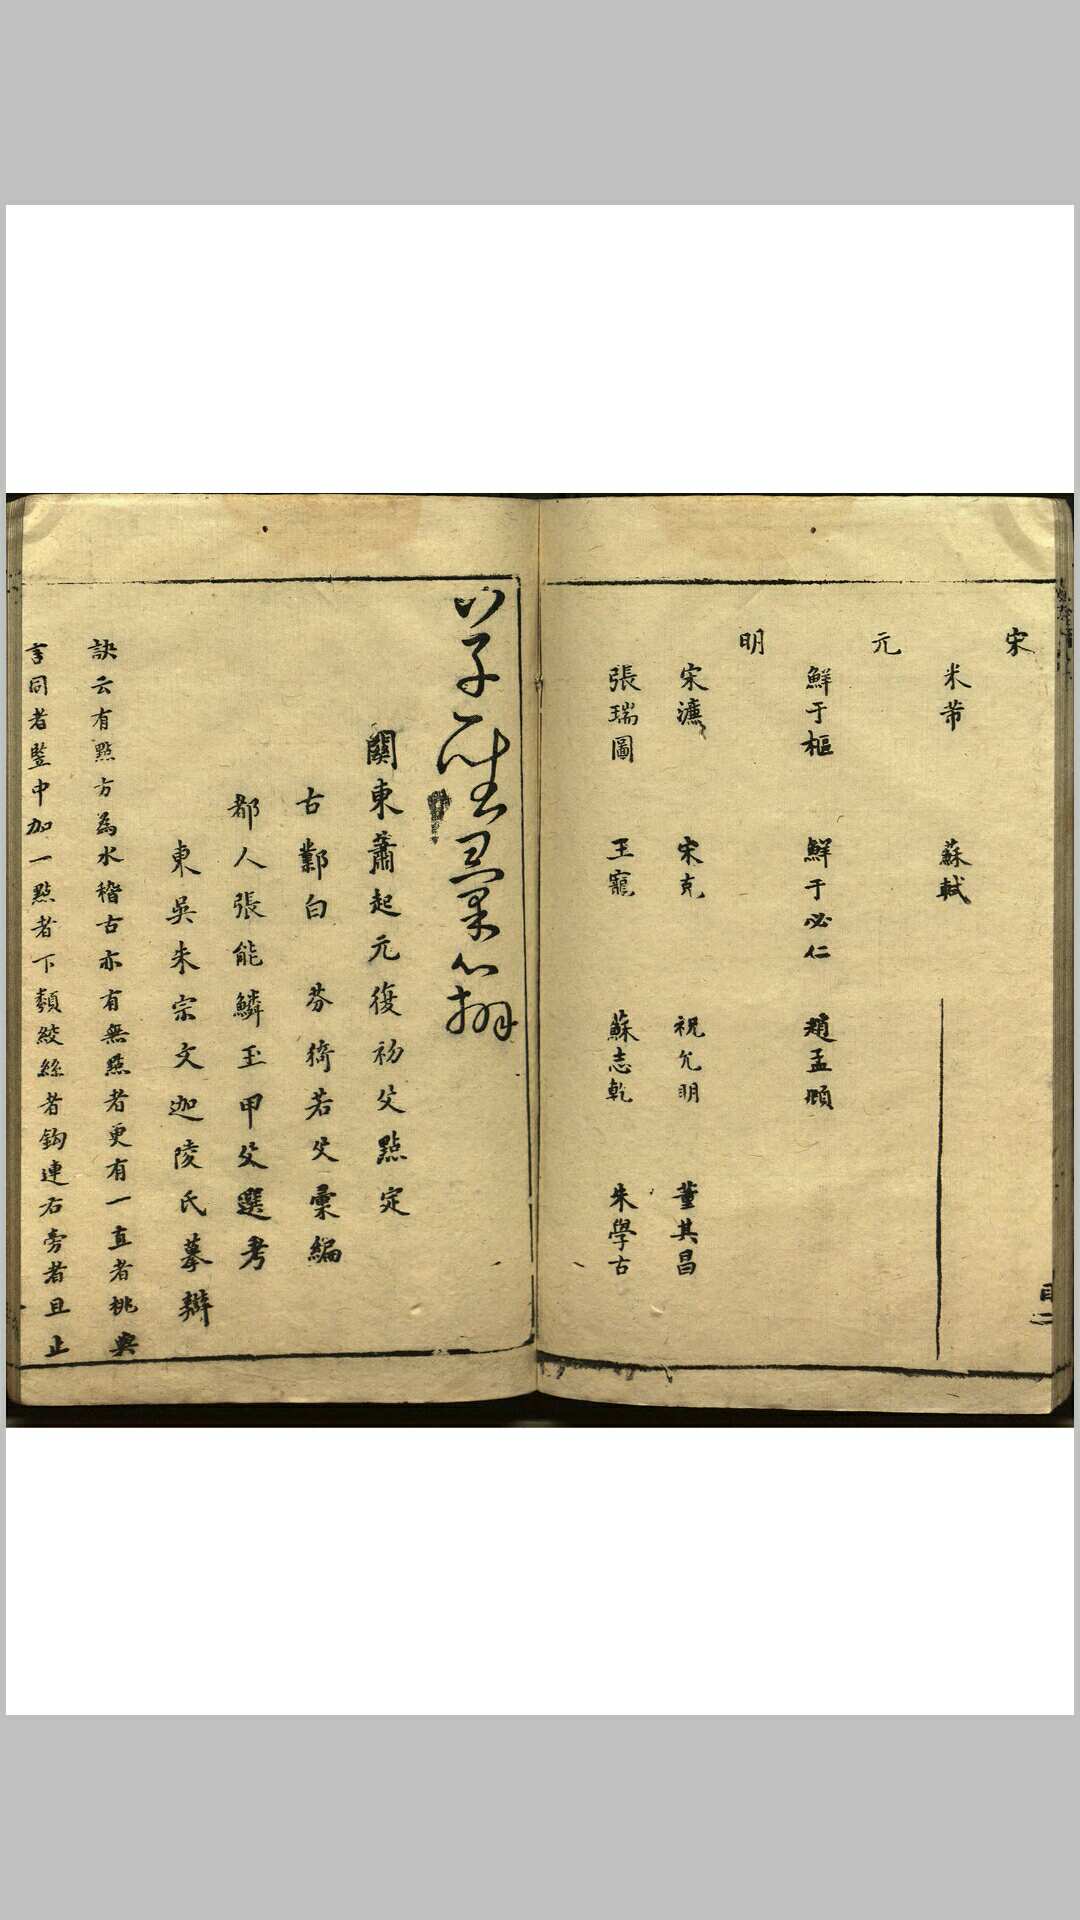 宋
米芾 蘇軾
元
鮮于樞 鮮于必仁 趙孟頫
明
宋濂 宋克 祝允明 董其昌
張瑞圖 王寵 蘇志乾 朱學古
目二
草聖彙
關東蕭起元復初父點定
古鄴白 芬猗若父彙編
都人張能鱗玉甲父選考
東吳朱宗文迦陵氏摹辯
訣云有點方為水稽古亦有無點者更有一直者桃與
言同者豎中加一點者下類絞絲者鈎連右旁者且止